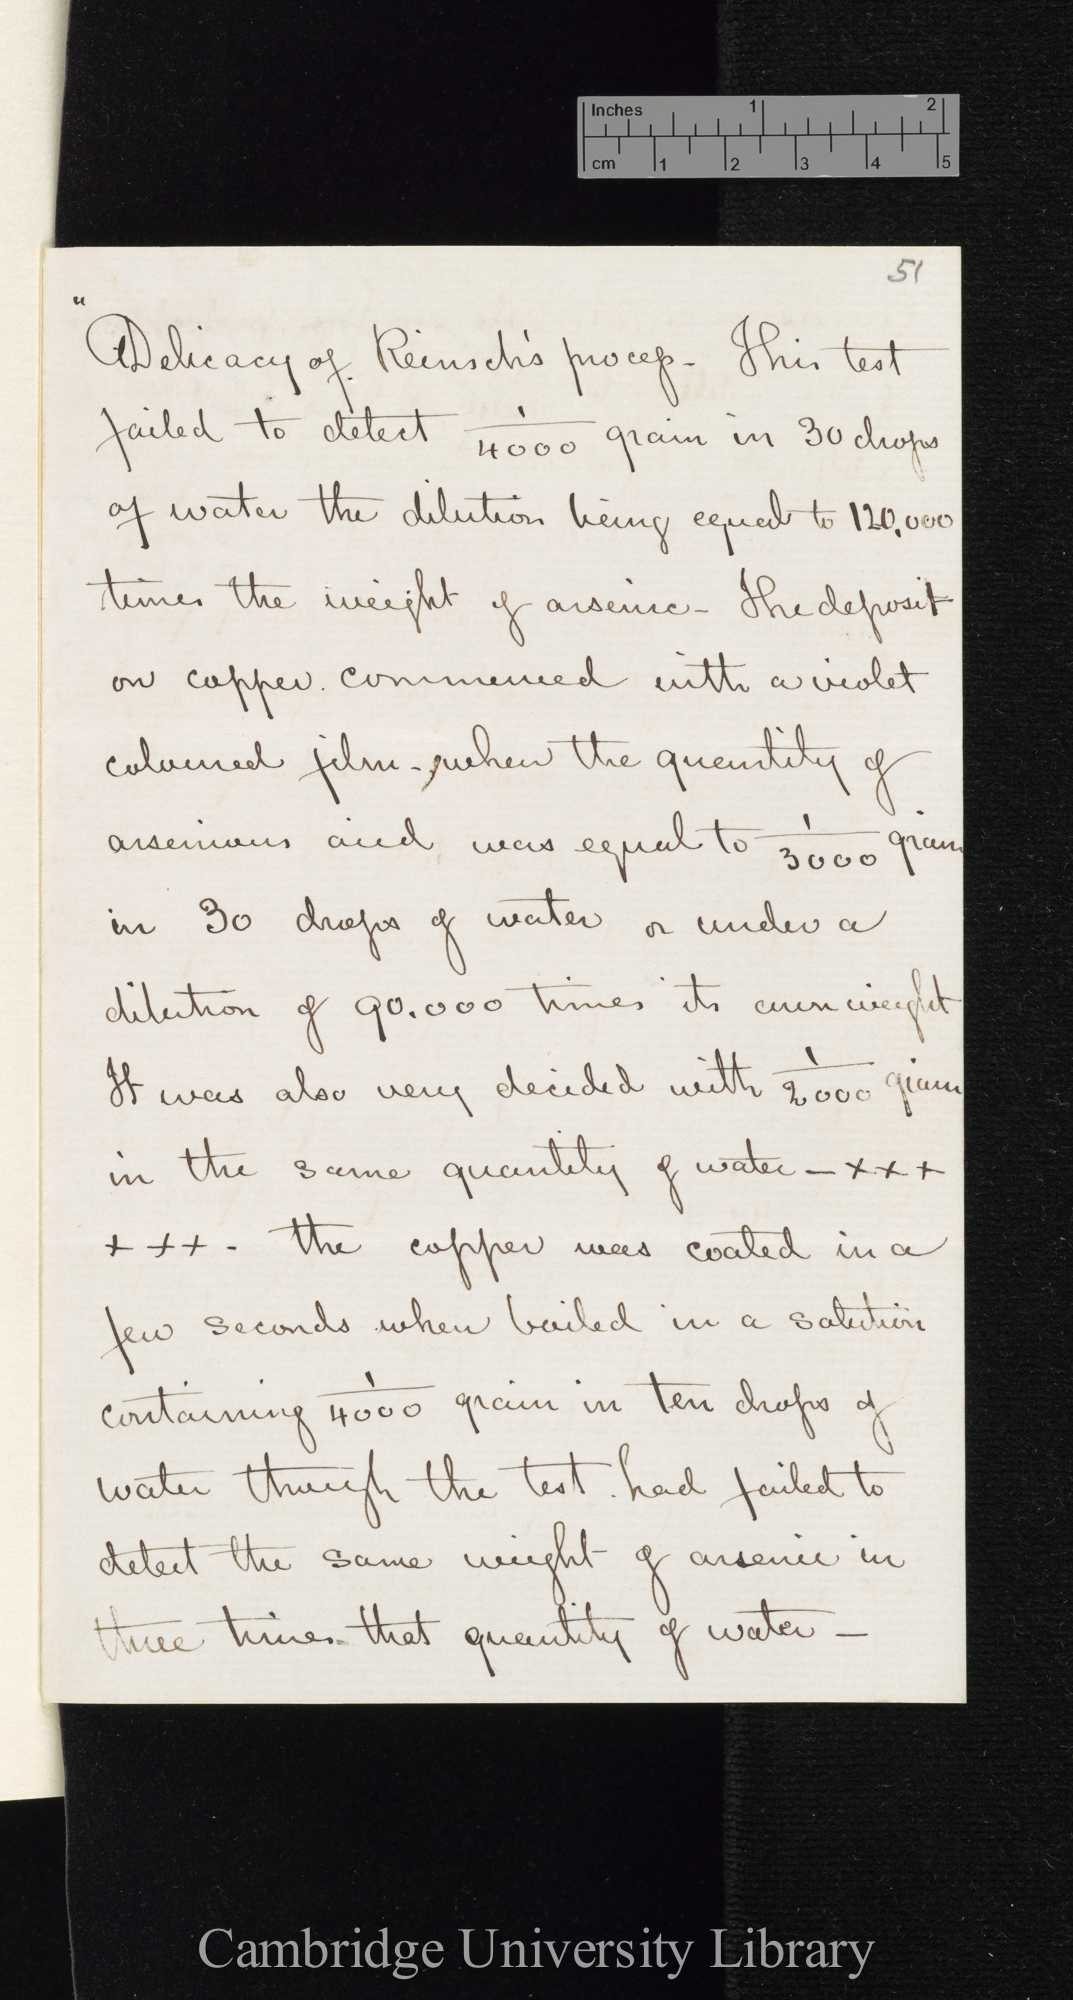 Inches 1 2
cm 1 2 3 4 5
51
"
Delicacy of Reinsch's process - This test
failed to detect 1/4000 grain in 30 drops
of water the dilution being equal to 120,000
times the weight of arsenic - The deposit
on copper commenced with a violet
coloured film - when the quantity of
arsenious acid was equal to 1/3000 grain
in 30 drops of water or under a
dilution of 90.000 times its own weight
It was also very decided with 1/2000 grain
in the same quantity of water - x x x
x x x - the copper was coated in a
few seconds when boiled in a solution
containing 1/4000 grain in ten drops of
water though the test had failed to
detect the same weight of arsenic in
three times that quantity of water -
Cambridge University Library